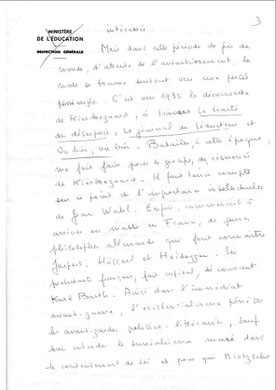 3
MINISTÈRE
DE L'ÉDUCATION
INSPECTION GÉNÉRALE
Mais dans cette période de fin de
monde, d'attente de l'anéantissement, la
mode se tourne surtout vers une pensée
C'est vers 1935 la découverte
de Kierkegaard, à travers Le traité
du désespoir, Le journal du Séducteur et
Ou bien, ou bien. Bataille, à cette époque,
me fait faire pour le groupe, des résumés
de Kierkegaard. Il faut tenir compte
sur ce point de l'importance intellectuelle
de Jean Wahl. Enfin, commencent à
arriver en masse en France, de jeunes
philosophes allemands qui font connaître
Jaspers, Husserl et Heidegger. Les
protestants français, fait capital, découvrent
Karl Barth. Ainsi dans l'immédiat
avant-guerre, l'existentialisme pénètre
les avant-gardes politico-littéraires, sauf
bien entendu le surréalisme muré dans
le contentement de soi et pour qui Nietzsche